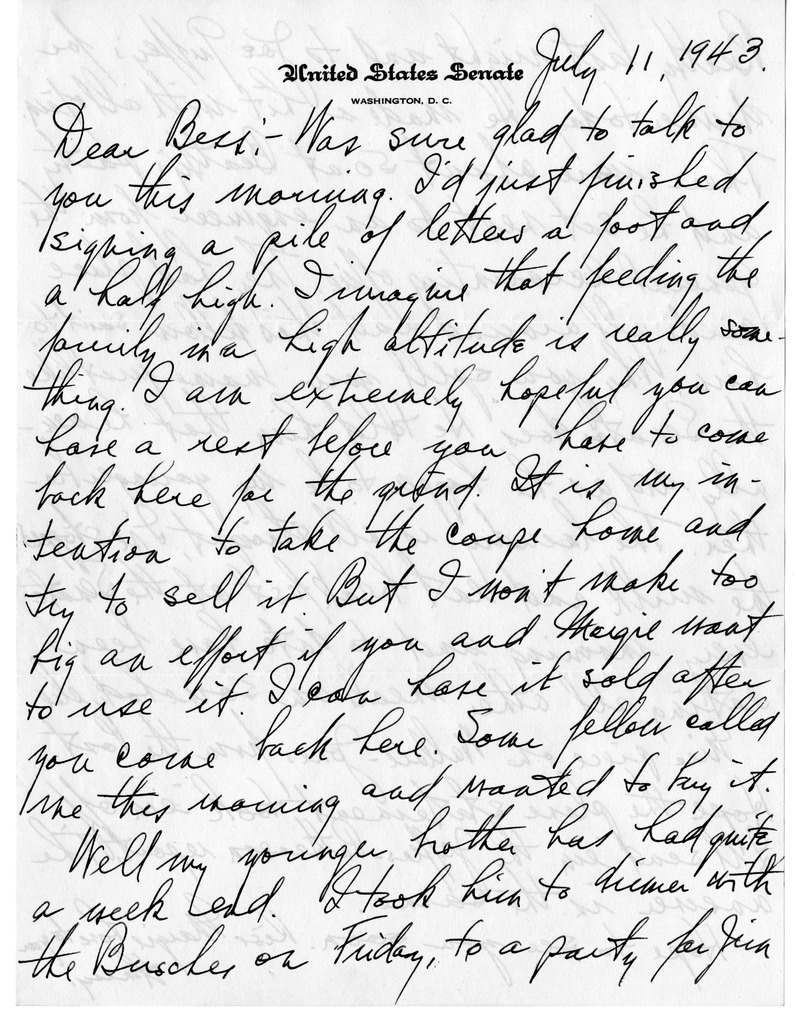 United States Senate
WASHINGTON, D. C.
July 11, 1943.
Dear Bess:- Was sure glad to talk to
you this morning. I'd just finished
signing a pile of letters a foot and
a half high. I imagine that feeding the
family in a high altitude is really some-
thing. I am extremely hopeful you can
have a rest before you have to come
back here for the grind. It is my in-
tention to take the coupe home and
try to sell it. But I won't make too
big an effort if you and Margie want
to use it. I can have it sold after
you come back here. Some fellow called
me this morning and wanted to buy it.
Well my younger brother has had quite
a week end. I took him to dinner with
the Busches on Friday, to a party for Jim